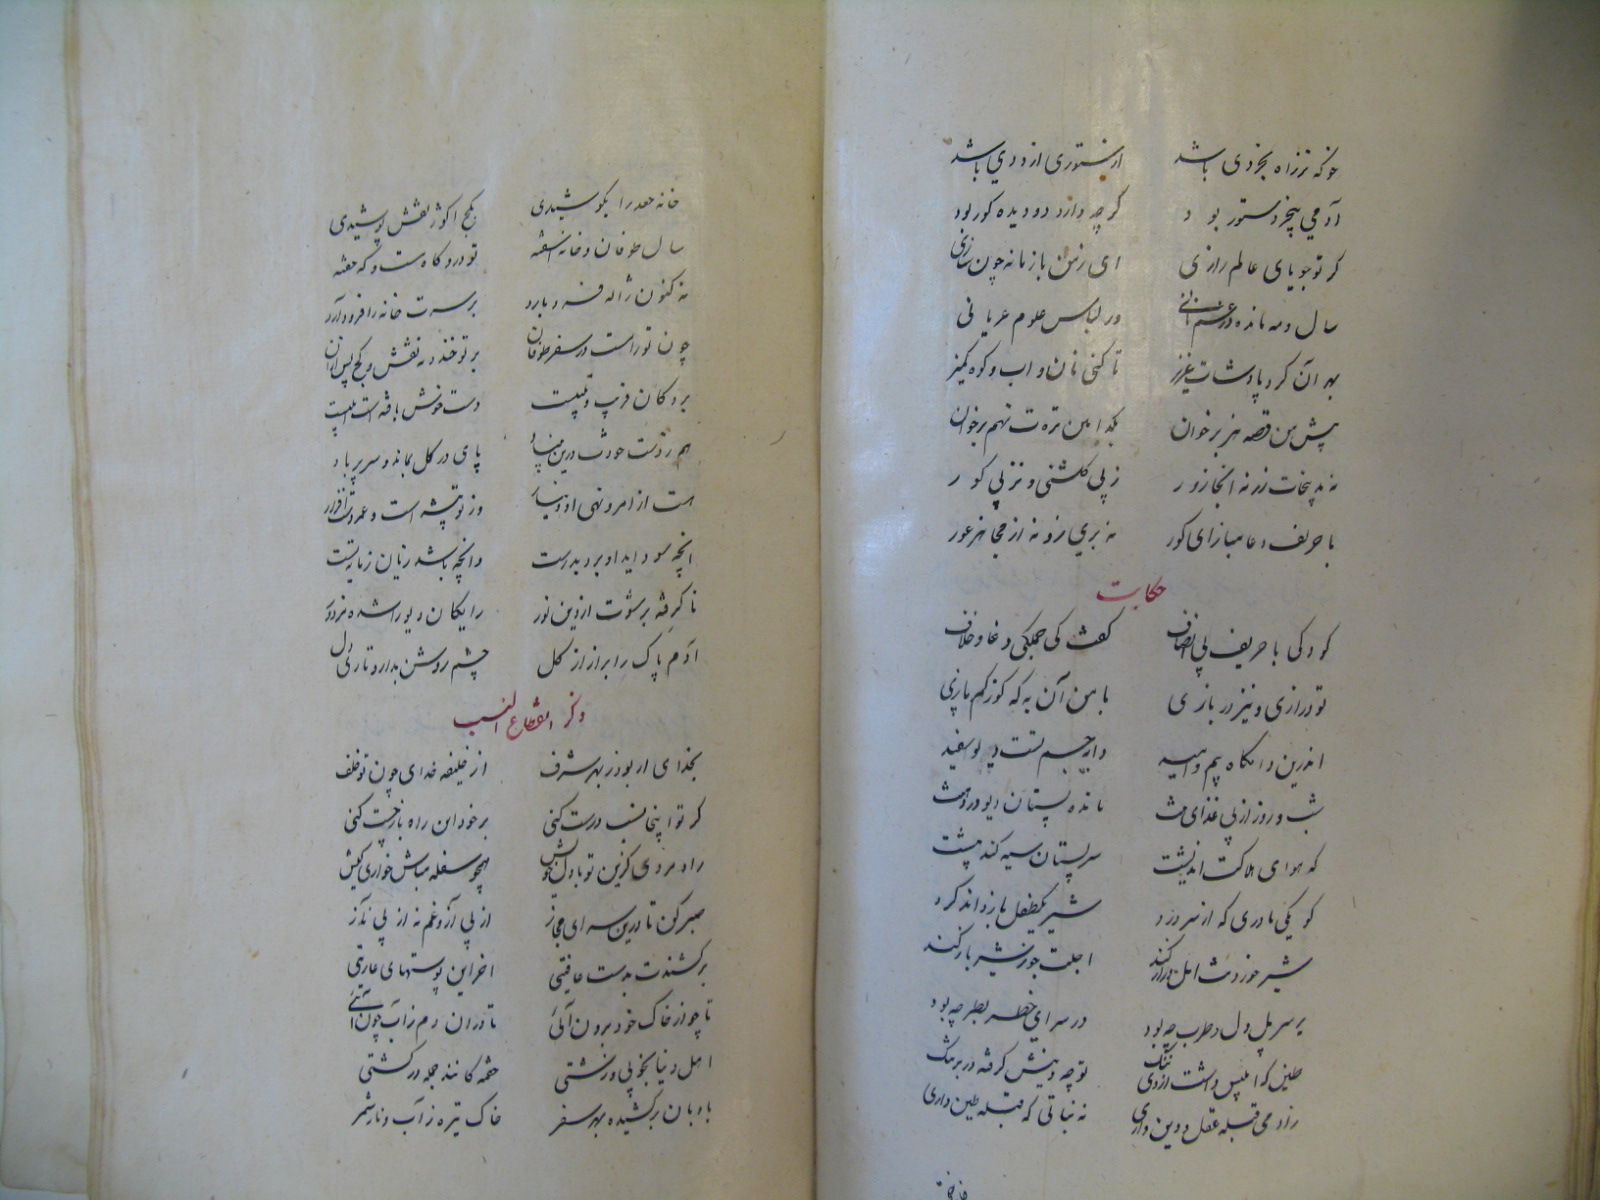 خو که تر زاه بخردی باشد از ستوری از ددی باشد
آدمی بیخرد ستور بود گرچه دارد دو دیده کور بود
گر تو جویای عالم رازی ای زمن باز مانه چون سازی
سال و مه مانده در غم در لباس علوم عریانی
بهر آن کرد پادشات عزیز تا کنی نان و اب و کوه کمیز
پیش من قصه هنر برخوان بکدامین تره ت نهم بر خوان
نه بدینجات زر نه انجا زور ز پی گلشنی و نز پی گور
با حریف دغا مباز ای کور نه بری زو نه از مجاهز عور
حکایت
کودکی با حریف بی انصاف گفت کی جملگی دغا و خلاف
تو درازی و نیز در بازی با من آن به که کوز کم بازی
اندرین دامگاه بیم و امید دارد جسم تست دیو سفید
شب و روز از پی غذای مشت مانده پستان دیو در مشت
که هوای هلاکت اندیشت سر پستان سیه کند پیشت
کو یکی مادری که از سر درد شیر یکطفل باز داند کرد
شیر خوردنت امل دراز کند اجلت خود ز شیر باز کند
بر سر پل دل و طرب چه بود در سرای خطر بطر چه بود
طین که ابلیس داشت ازوی ننگ تو چه دینش گرفته در بر تنگ
زادمی قبله عقل و دین داری نه نباتی که قبله طین داری
خانه حقد را بکوشیدی بکج اکوژ نقش پوشیدی
سال طوفان و خانه اشفته تو درو گاه مست و گه خفته
نه کنون ژاله فسرده بارد بر سرت خانه را فرود آرد
چون تو راست در سفر طوفان بر تو خندد نه نقش و کج پس ازان
بر دکان فریب و تلبیست دست خوش یافته است ابلیست
هم ز دست حودث درین بنیاد پای در گل بماند و سر پر باد
هست از امر و نهی او دنیات وز تو تیشه است و عمر دست افزار
انچه سود اید او برد بدرست وانچه باشد زیان زمایه تست
نا گرفته بر سؤت از دین نور رایگان دیو را شده مزدور
آدم پاک را برار از گل چشم روشن بدار و تاری دل
ذکر انقطاع النسب
بخدای ار بود ز بهر شرف از خلیفه خدای چون تو خلف
گر تو اینجا نسب درست کنی بر خود ان راه باز جست کنی
راه مردی گزین تو با دل خوش همچو سفله مباش خواری کش
صبر کن تا درین سرای مجاز از پی آز و غم نه از پی ناز
بر کشندت بدست عافیتی اخر این پوستهای عاریتی
تا چو از خاک خود برون آئی تا دران دم ز آب چون آئی
اهل دنیا بخوبی و زشتی خفته گانند جمله در کشتی
بادبان بر کشیده بهر سفر خاک تیره ز آب و نار شمر